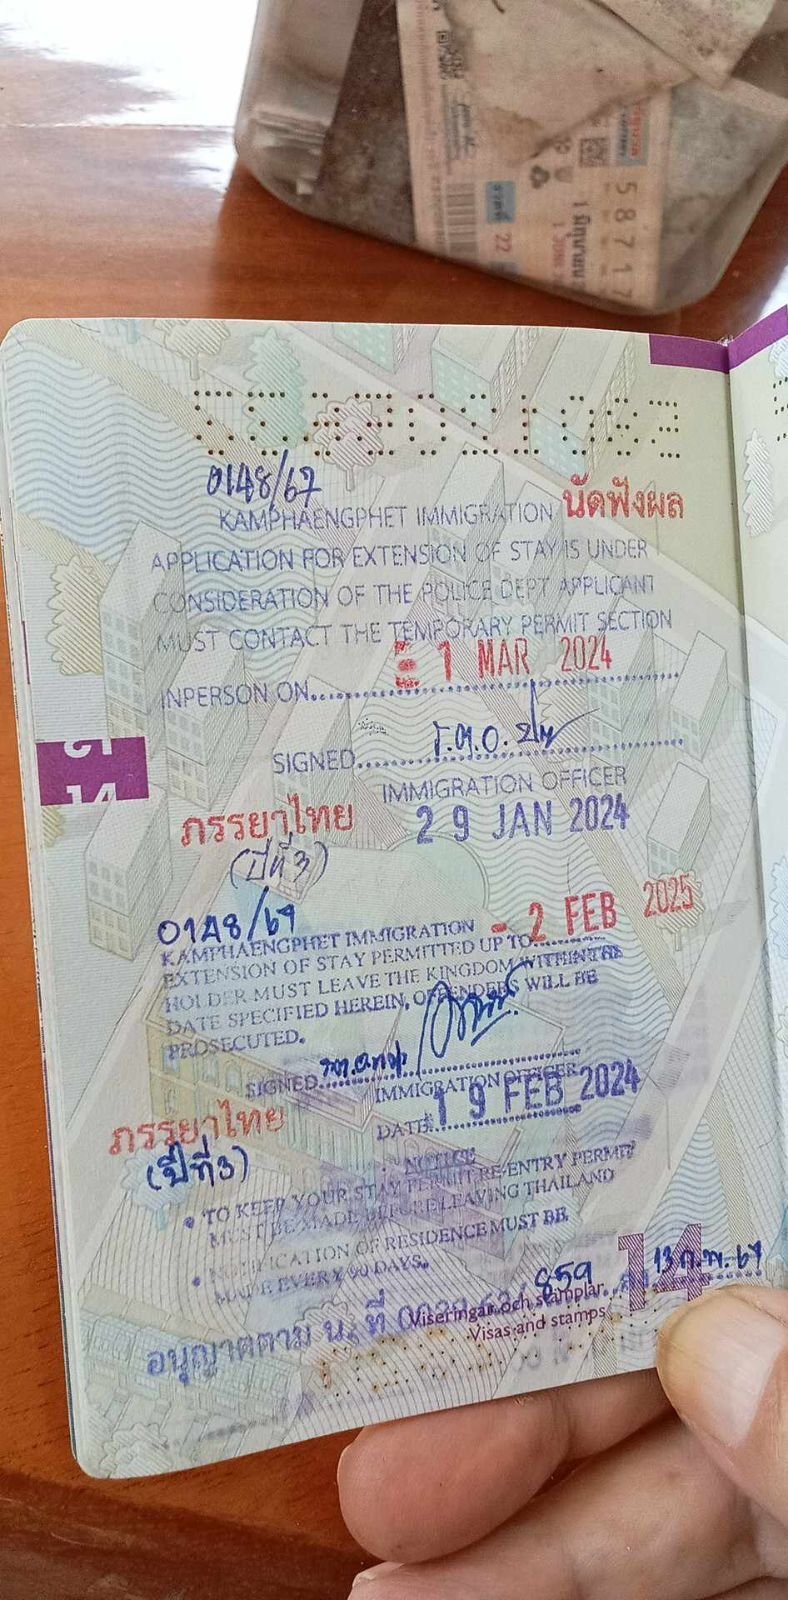 58717
22
0148/67
KAMPHAENGPHET IMMIGRATION นัดฟังผล
APPLICATION FOR EXTENSION OF STAY IS UNDER
CONSIDERATION OF THE POLICE DEPT APPLICANT
MUST CONTACT THE TEMPORARY PERMIT SECTION
INPERSON ON 1 MAR 2024
SIGNED ร.ต.อ.
IMMIGRATION OFFICER
ภรรยาไทย 29 JAN 2024
(ปีที่ 3)
0148/67 - 2 FEB 2025
KAMPHAENGPHET IMMIGRATION
EXTENSION OF STAY PERMITTED UP TO
HOLDER MUST LEAVE THE KINGDOM WITHIN THE
DATE SPECIFIED HEREIN, OFFENDERS WILL BE
PROSECUTED.
SIGNED
IMMIGRATION OFFICER
ภรรยาไทย DATE 19 FEB 2024
(ปีที่ 3)
NOTICE
• TO KEEP YOUR STAY PERMIT RE-ENTRY PERMIT
MUST BE MADE BEFORE LEAVING THAILAND
• NOTIFICATION OF RESIDENCE MUST BE
MADE EVERY 90 DAYS.
อนุญาตตาม น. ที่ 859 13 ก.พ. 67
14
Viseringar och stämplar
Visas and stamps